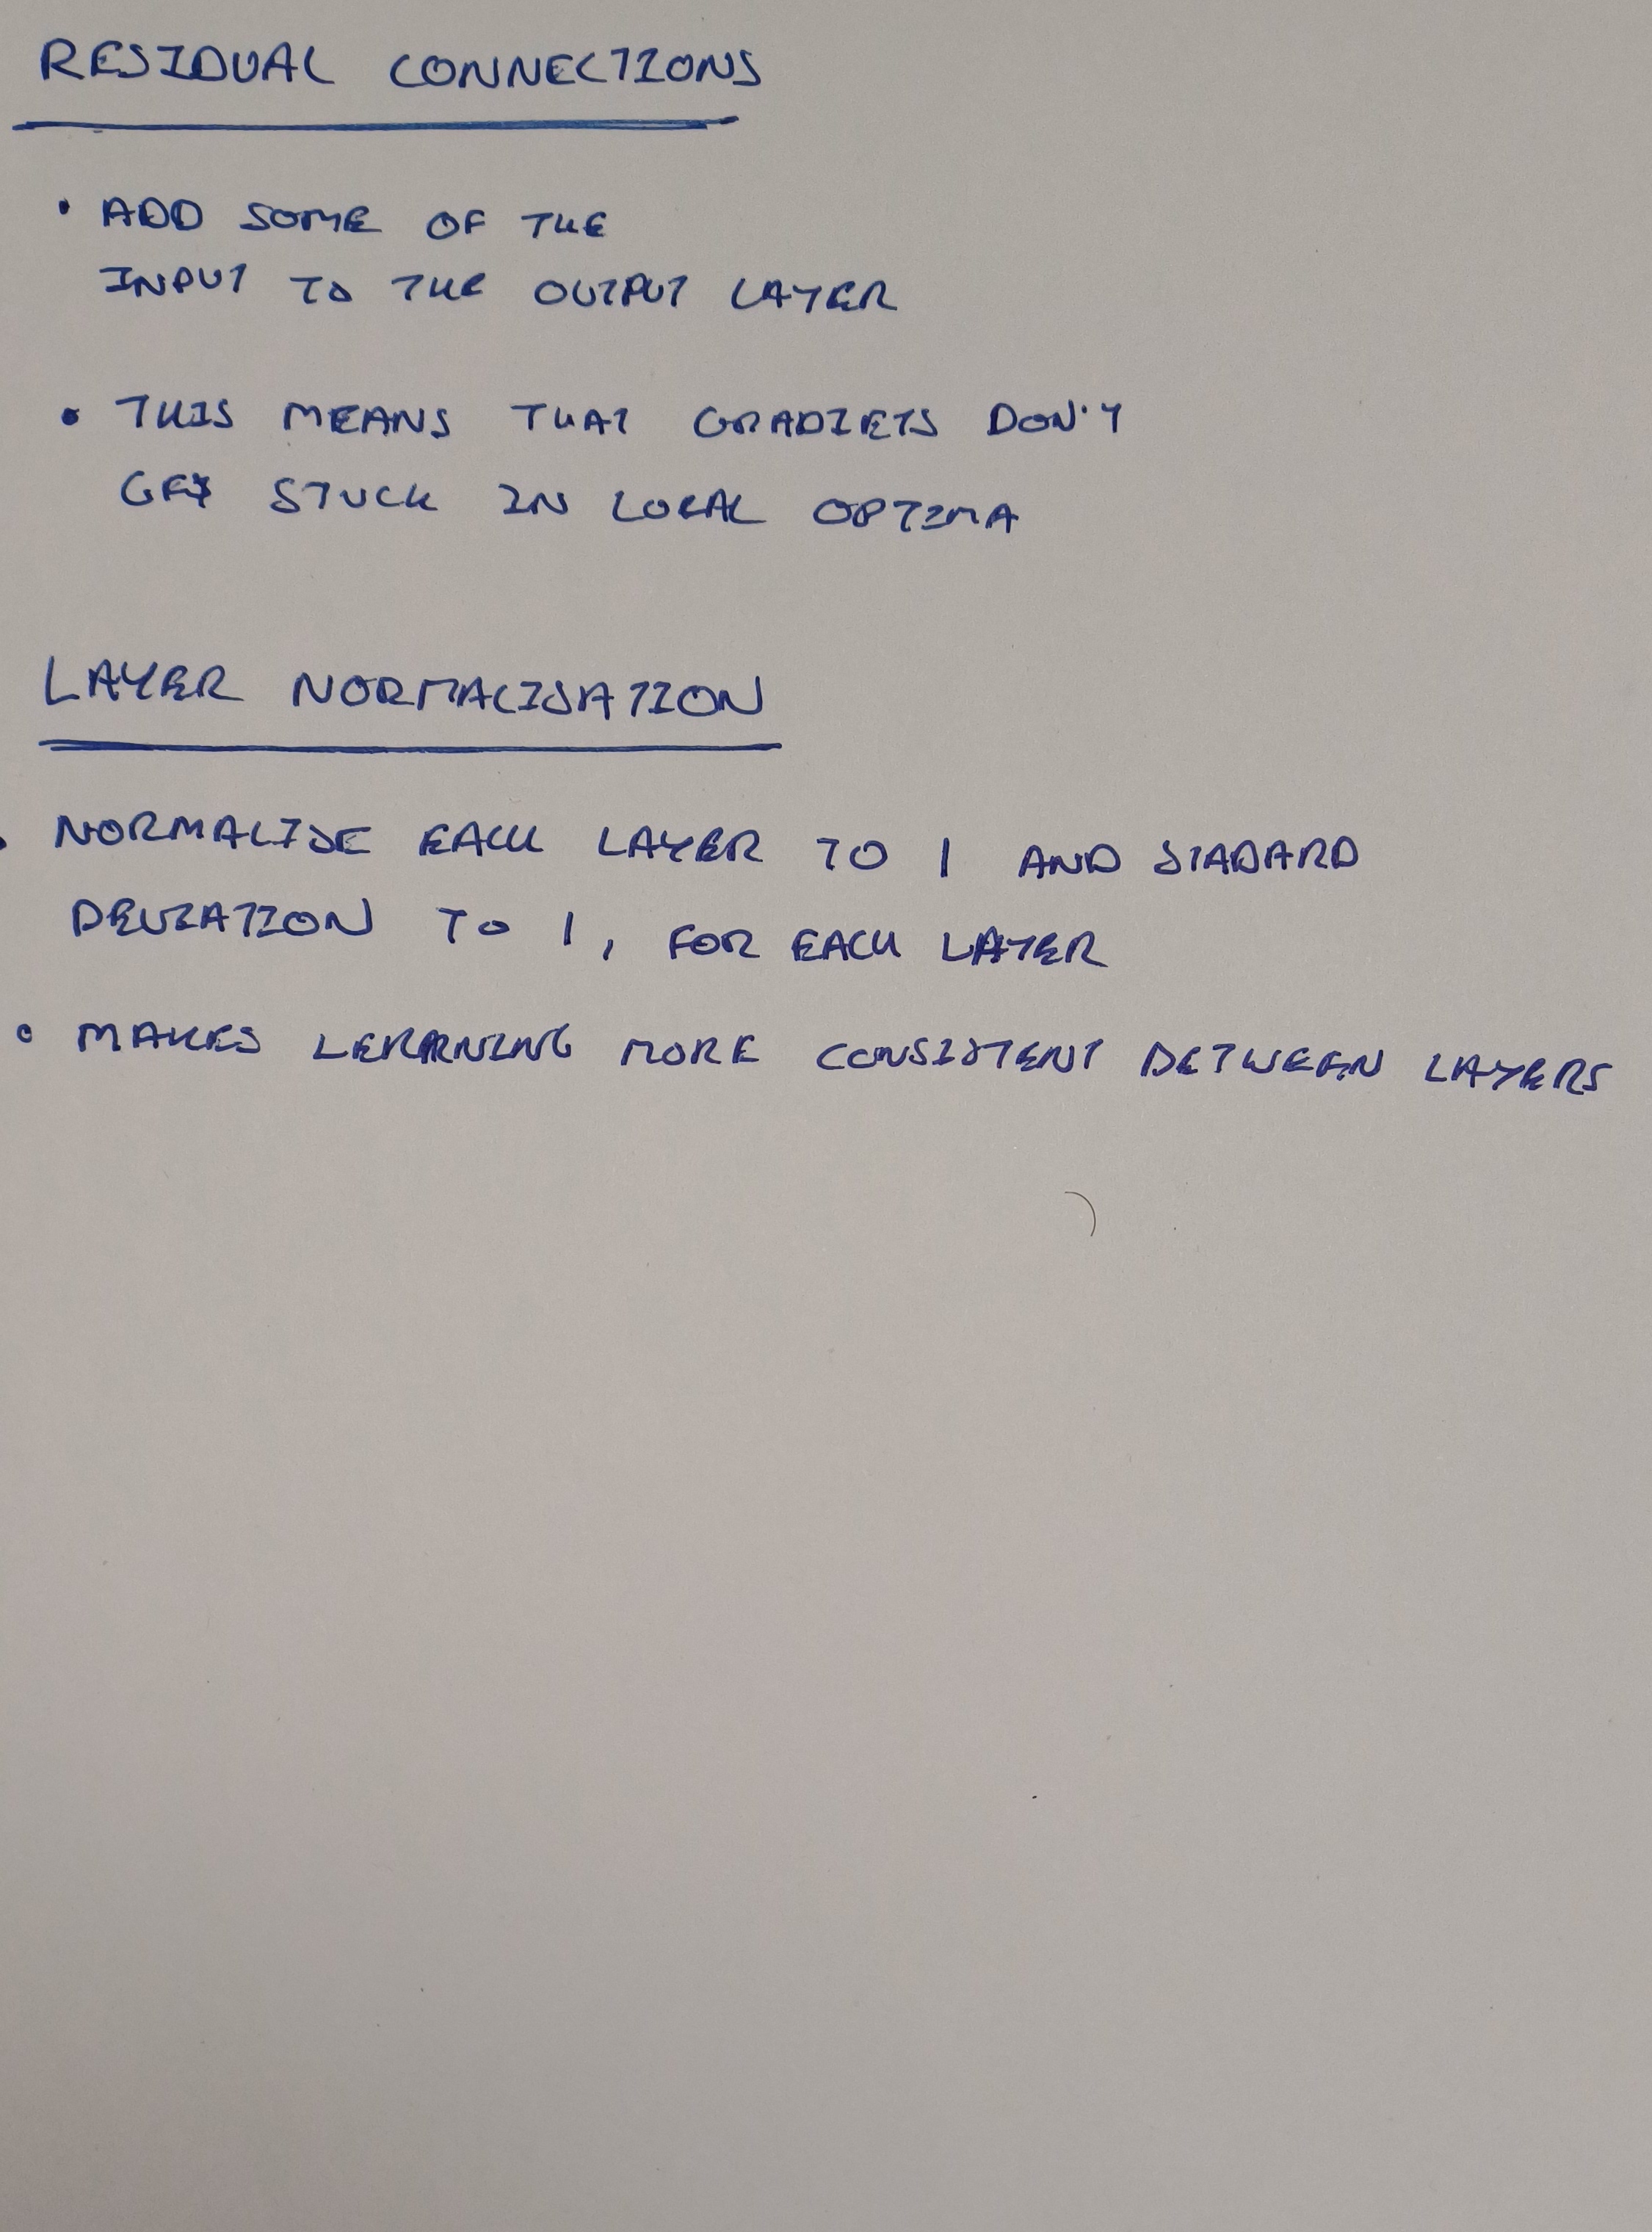 RESIDUAL CONNECTIONS
• ADD SOME OF THE
INPUT TO THE OUTPUT LAYER
• THIS MEANS THAT GRADIETS DON'T
GET STUCK IN LOCAL OPTIMA
LAYER NORMALISATION
• NORMALISE EACH LAYER TO 1 AND STADARD
DEVIATION TO 1, FOR EACH LAYER
• MAKES LERARNING MORE CONSISTENT BETWEEN LAYERS